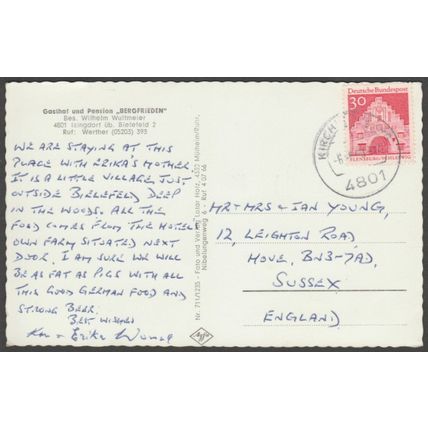 Gasthof und Pension „BERGFRIEDEN"
Bes. Wilhelm Wultmeier
4801 Isingdorf üb. Bielefeld 2
Ruf: Werther (05203) 393
WE ARE STAYING AT THIS
PLACE WITH ERIKA'S MOTHER.
IT IS A LITTLE VILLAGE JUST
OUTSIDE BIELEFELD DEEP
IN THE WOODS. ALL THE
FOOD COMES FROM THE HOTEL
OWN FARM SITUATED NEXT
DOOR. I AM SURE WE WILL
BE AS FAT AS PIGS WITH ALL
THIS GOOD GERMAN FOOD AND
STRONG BEER.
BEST WISHES
Ken + Erika
Nr. 711/1235 - Foto und Verlag Lazar Hetz, 4330 Mülheim/Ruhr,
Nibelungenweg 6 - Ruf 4 07 66
Agfa
Deutsche Bundespost
30
FLENSBURG/SCHLESWIG
KIRCH
4801
MR + MRS + IAN YOUNG,
12, LEIGHTON ROAD,
HOVE, BN3-7AD,
SUSSEX
ENGLAND